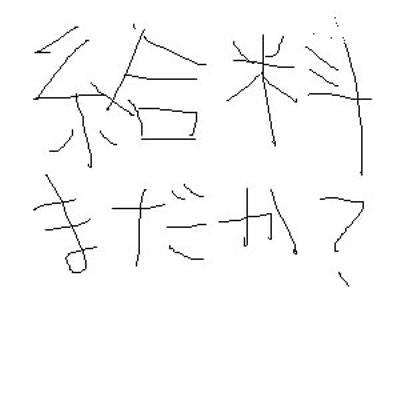 給料
まだか?